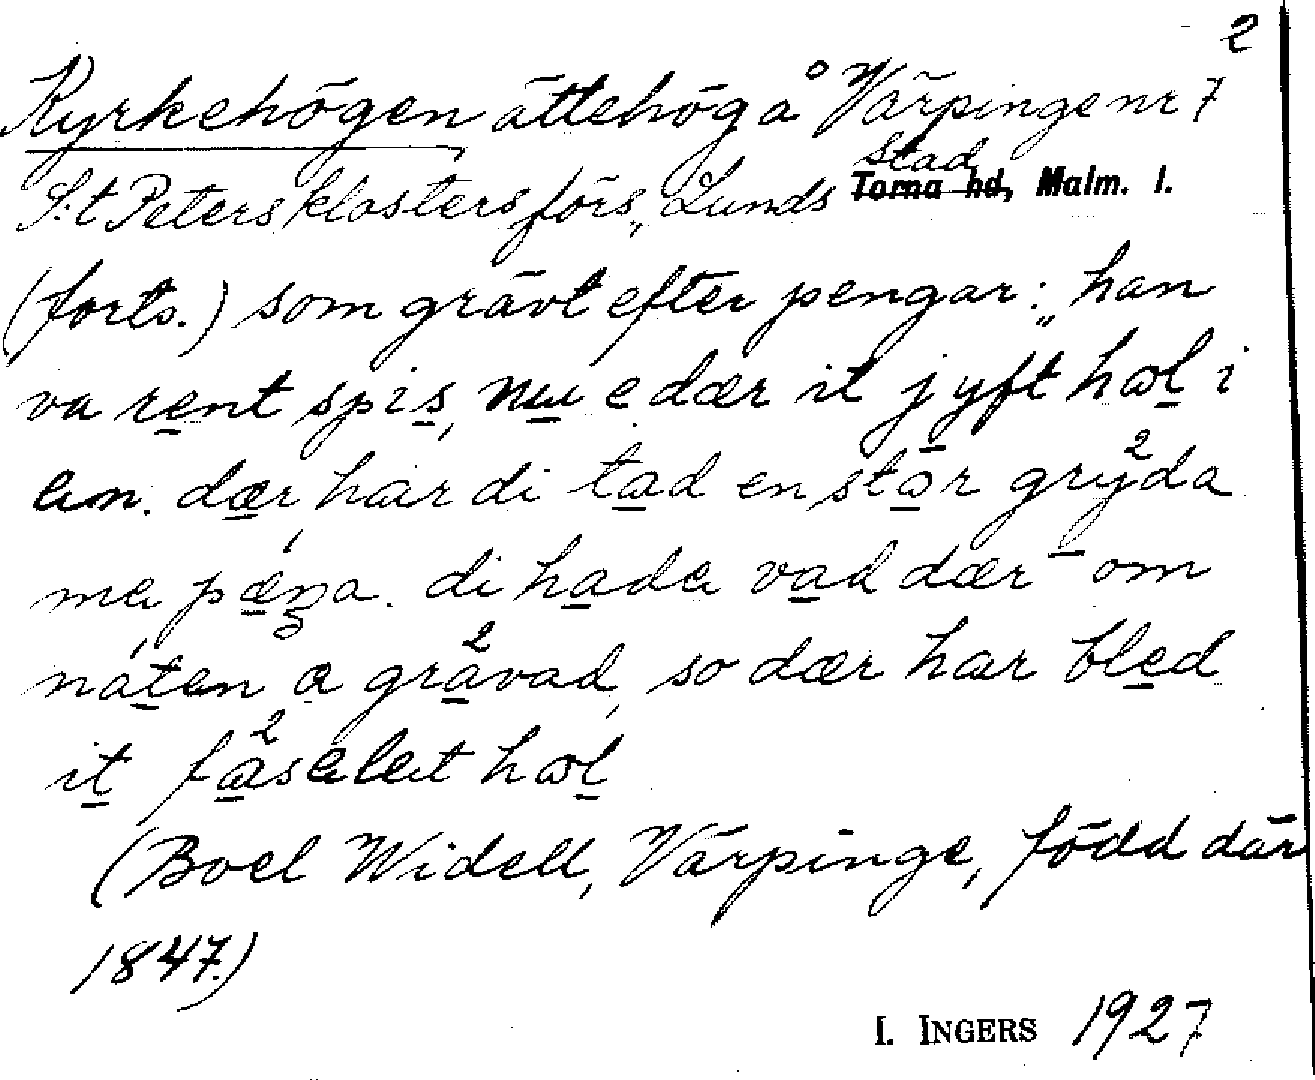 2
Kyrkehögen ättehög å Värpinge nr 7
S:t Peters klosters förs., Lunds stad Torna hd, Malm. l.
(forts.) som grävt efter pengar: „han
va rent spis, nu e dær it jyft hol i
an. dær har di tad en stor gryda
me pæŋa. di hade vad dær om
náten a gravad, so dær har bled
it fasalat hol
(Boel Widell, Värpinge, född där
1847.)
I. INGERS 1927